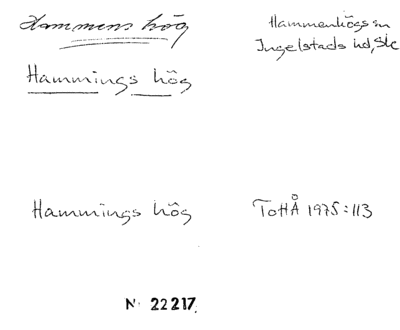 Hammens hög
Hammenhögs sn
Ingelstads hd, Sk
Hammings hög
Hammings hög
ToHÅ 1975:113
N. 22217.